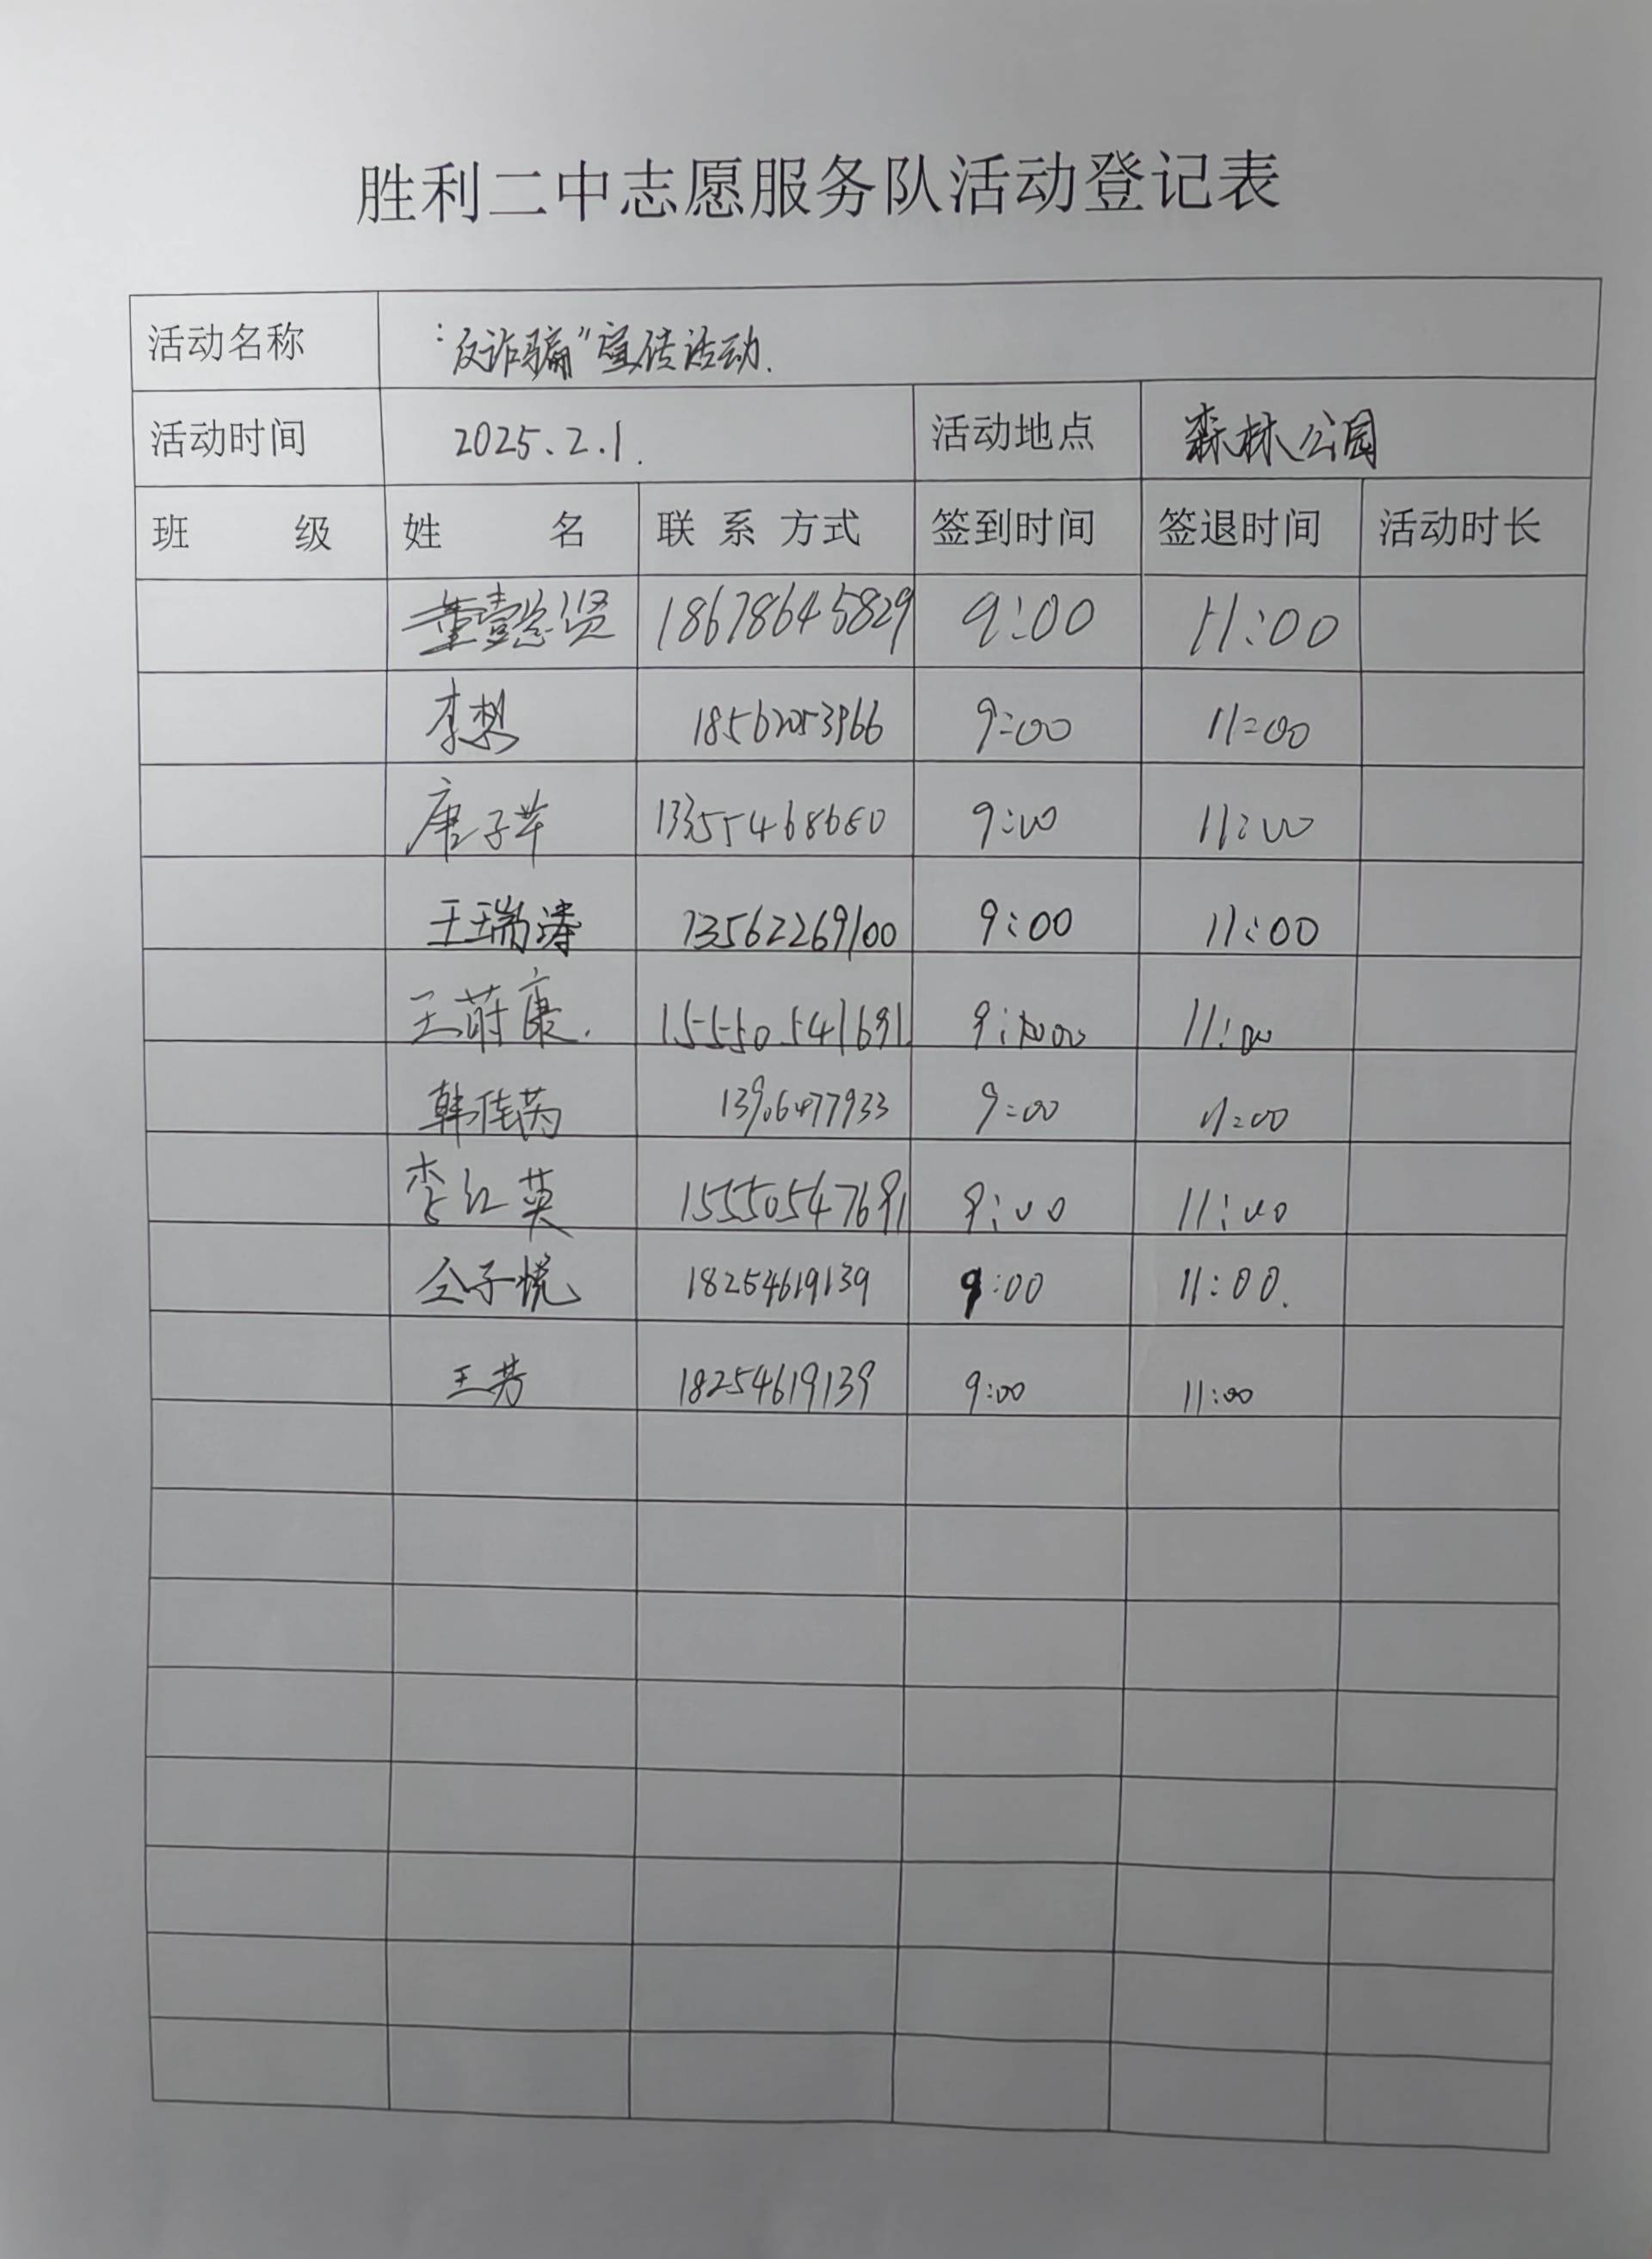 胜利二中志愿服务队活动登记表
活动名称 "反诈骗"宣传活动.
活动时间 2025.2.1. 活动地点 森林公园
班 级 姓 名 联系方式 签到时间 签退时间 活动时长
董懿贤 18678645829 9:00 11:00
李想 18562053966 9:00 11:00
唐子苹 13355468660 9:00 11:00
王瑞涛 13562269100 9:00 11:00
王蔚康. 15550541691 9:00 11:00
韩佳芮 13906477933 9:00 11:00
李红英 15550547691 9:00 11:00
仝子悦 18254619139 9:00 11:00.
王芳 18254619139 9:00 11:00